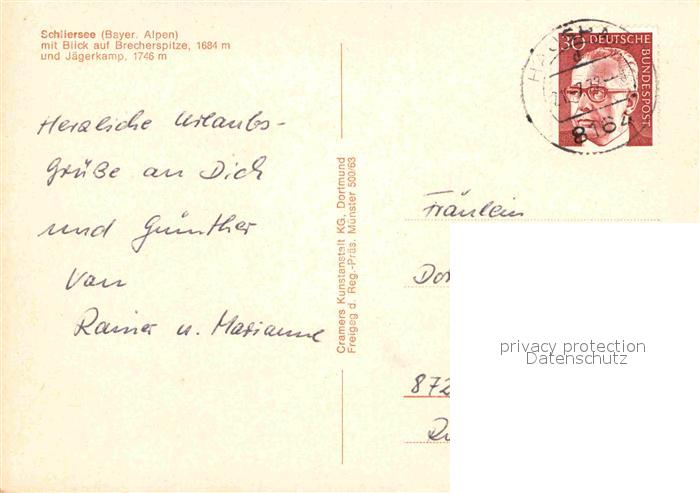 Schliersee (Bayer. Alpen)
mit Blick auf Brecherspitze, 1684 m
und Jägerkamp, 1746 m
Herzliche Urlaubs-
grüße an Dich
und Günther
von
Rainer u. Marianne
Cramers Kunstanstalt KG. Dortmund
Freigeg d. Reg.-Präs. Münster 500/63
30 DEUTSCHE
BUNDESPOST
8164
Fräulein
Dor
872
privacy protection
Datenschutz